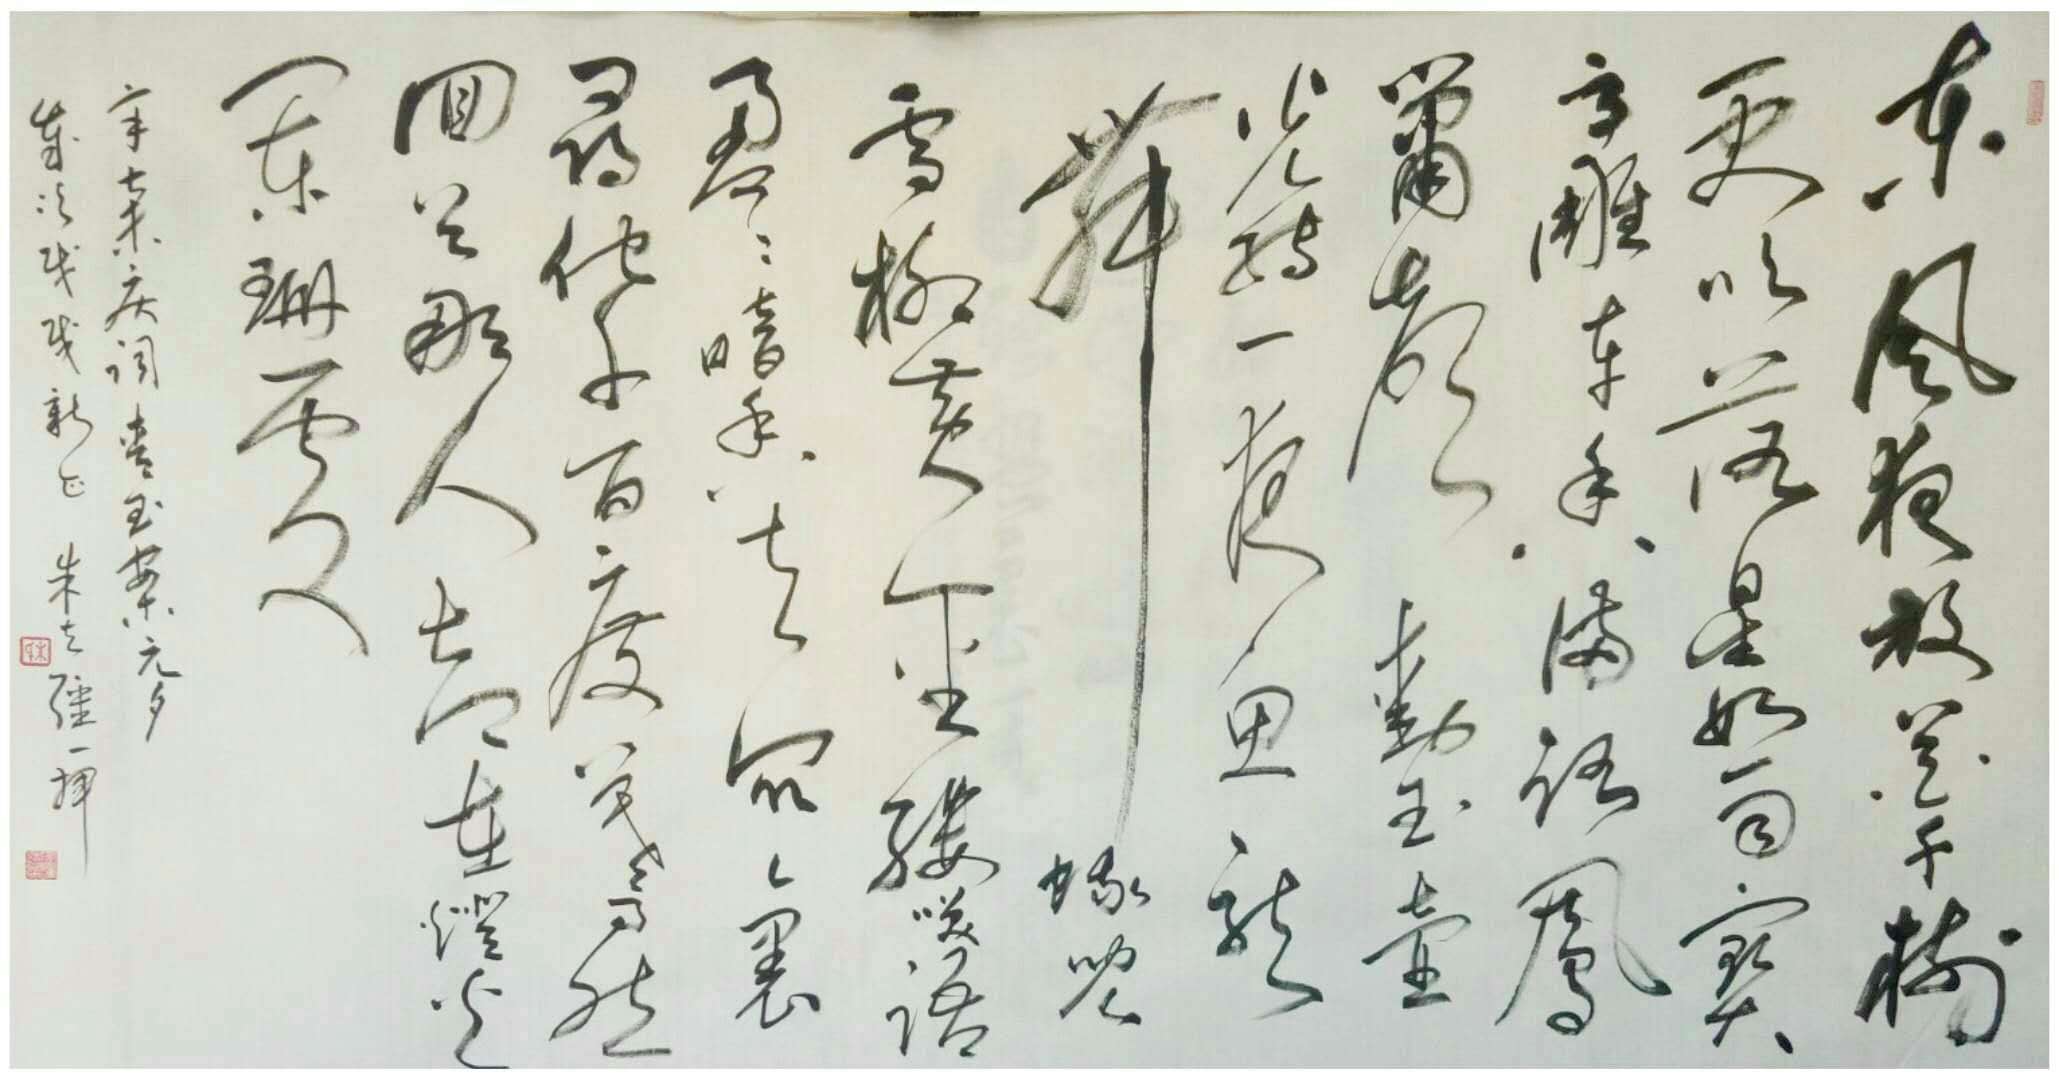 东风夜放花千树
更吹落星如雨寶
马雕车香满路鳳
簫声動玉壺
光转一夜鱼龙
舞蛾儿
雪柳黄金缕咲语
盈盈暗香去众里
尋他千百度蓦然
回首那人却在燈火
阑珊处
辛弃疾词青玉案元夕
岁次戊戌新正 朱 强一挥